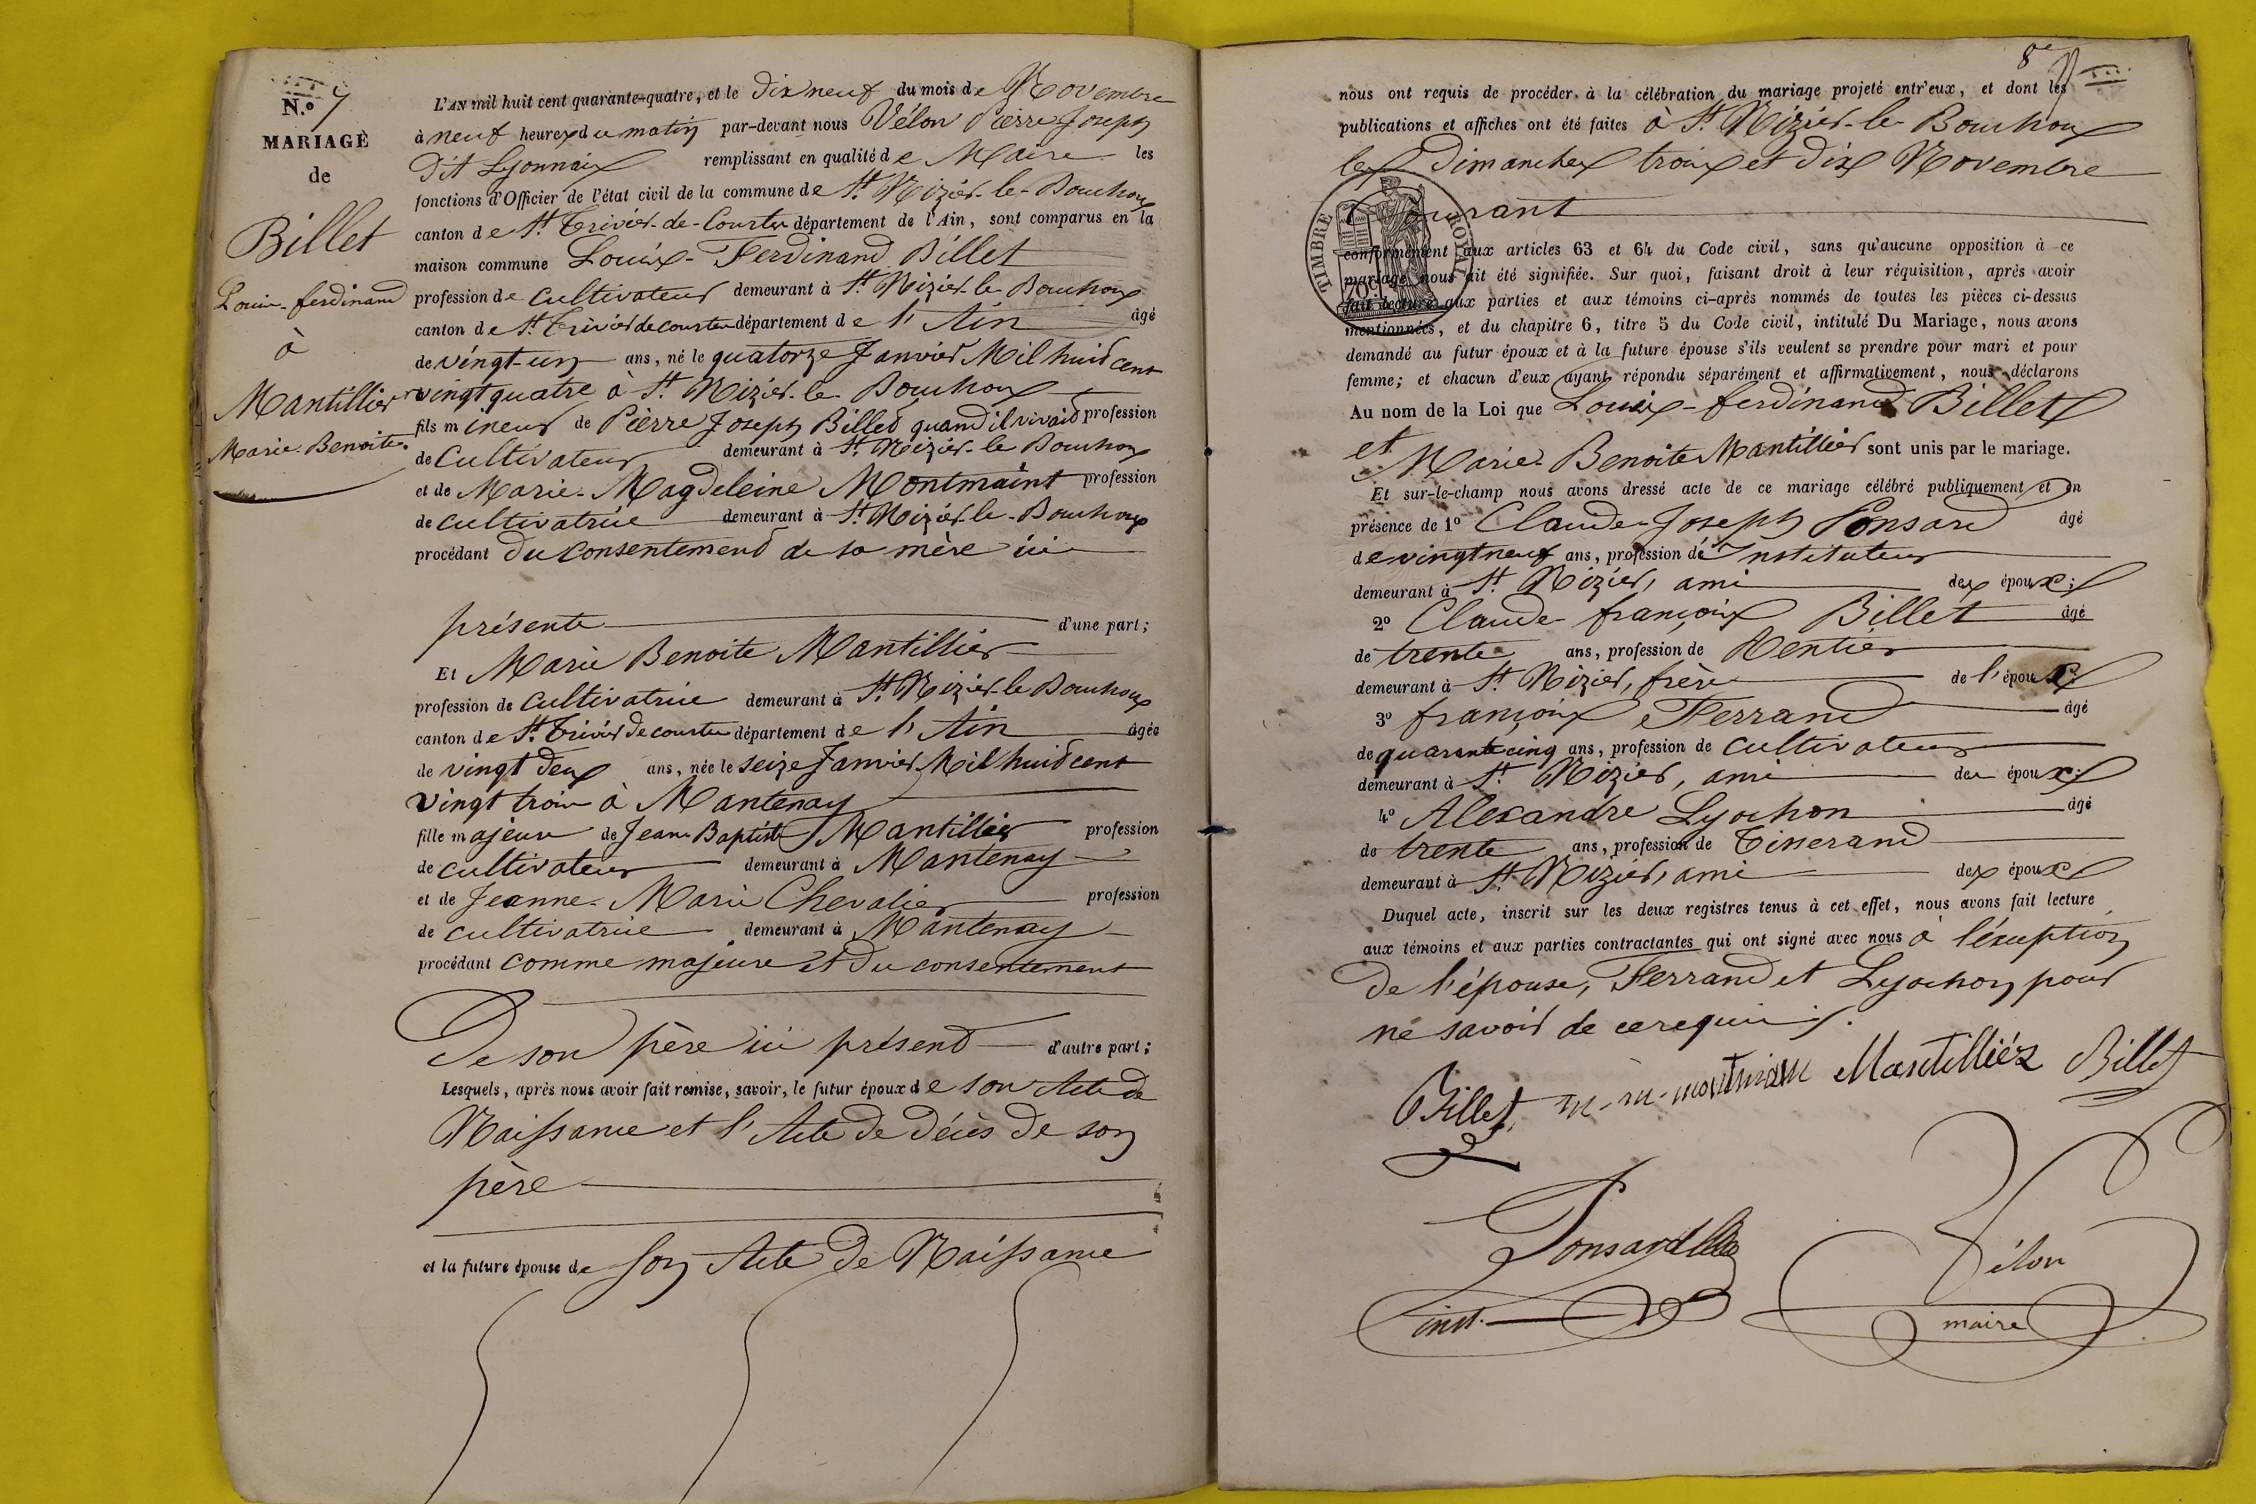 N.o 7
MARIAGE
de
Billet
Louis-ferdinand
à
Mantillier
Marie-Benoite
L'AN mil huit cent quarante-quatre, et le dix neuf du mois de Novembre
à neuf heures du matin par-devant nous Vélon Pierre Joseph
dit Lyonnais remplissant en qualité de Maire les
fonctions d'Officier de l'état civil de la commune de St. Nizier-le-Bouchoux
canton de St. Trivier-de-Courtes département de l'Ain, sont comparus en la
maison commune Louis-Ferdinand Billet
profession de cultivateur demeurant à St. Nizier-le-Bouchoux
canton de St. Trivier de courtes département de l'Ain âgé
de vingt-un ans, né le quatorze Janvier Mil huit cent
vingt quatre à St. Nizier-le-Bouchoux
fils mineur de Pierre Joseph Billet quand il vivait profession
de Cultivateur demeurant à St. Nizier-le-Bouchoux
et de Marie-Magdeleine Montmaint profession
de cultivatrice demeurant à St. Nizier-le-Bouchoux
procédant du consentement de sa mère ici
présente d'une part;
Et Marie Benoite Mantillier
profession de cultivatrice demeurant à St. Nizier-le-Bouchoux
canton de St. Trivier de courtes département de l'Ain âgée
de vingt deux ans, née le seize Janvier Mil huit cent
vingt trois à Mantenay
fille majeure de Jean Baptiste Mantillier profession
de cultivateur demeurant à Mantenay
et de Jeanne-Marie Chevalier profession
de cultivatrice demeurant à Mantenay
procédant comme majeure et du consentement
De son père ici présent d'autre part;
Lesquels, après nous avoir fait remise, savoir, le futur époux de son Acte de
Naissance et l'Acte de décès de son
père
et la future épouse de son Acte de Naissance
8e
nous ont requis de procéder à la célébration du mariage projeté entr'eux, et dont les
publications et affiches ont été faites à St. Nizier-le-Bouchoux
les Dimanches trois et dix Novembre
Courant
TIMBRE ROYAL
conformément aux articles 63 et 64 du Code civil, sans qu'aucune opposition à ce
mariage nous ait été signifiée. Sur quoi, faisant droit à leur réquisition, après avoir
fait lecture aux parties et aux témoins ci-après nommés de toutes les pièces ci-dessus
mentionnées, et du chapitre 6, titre 5 du Code civil, intitulé Du Mariage, nous avons
demandé au futur époux et à la future épouse s'ils veulent se prendre pour mari et pour
femme; et chacun d'eux ayant répondu séparément et affirmativement, nous déclarons
Au nom de la Loi que Louis-ferdinand Billet
et Marie-Benoite Mantillier sont unis par le mariage.
Et sur-le-champ nous avons dressé acte de ce mariage célébré publiquement et en
présence de 1o Claude-Joseph Ponsard âgé
de vingt neuf ans, profession de Instituteur
demeurant à St. Nizier, ami des époux;
2o Claude françois Billet âgé
de trente ans, profession de Rentier
demeurant à St. Nizier, frère de l'époux;
3o françois Ferrand âgé
de quarante cinq ans, profession de cultivateur
demeurant à St. Nizier, ami des époux;
4o Alexandre Lyochon âgé
de trente ans, profession de Tisserand
demeurant à St. Nizier, ami des époux
Duquel acte, inscrit sur les deux registres tenus à cet effet, nous avons fait lecture
aux témoins et aux parties contractantes qui ont signé avec nous à l'éxception
de l'épouse, Ferrand et Lyochon pour
ne savoir de ce requis.
Billet m-m-montmaint Mantilliér Billet
Ponsard
inst.
Vélon
maire